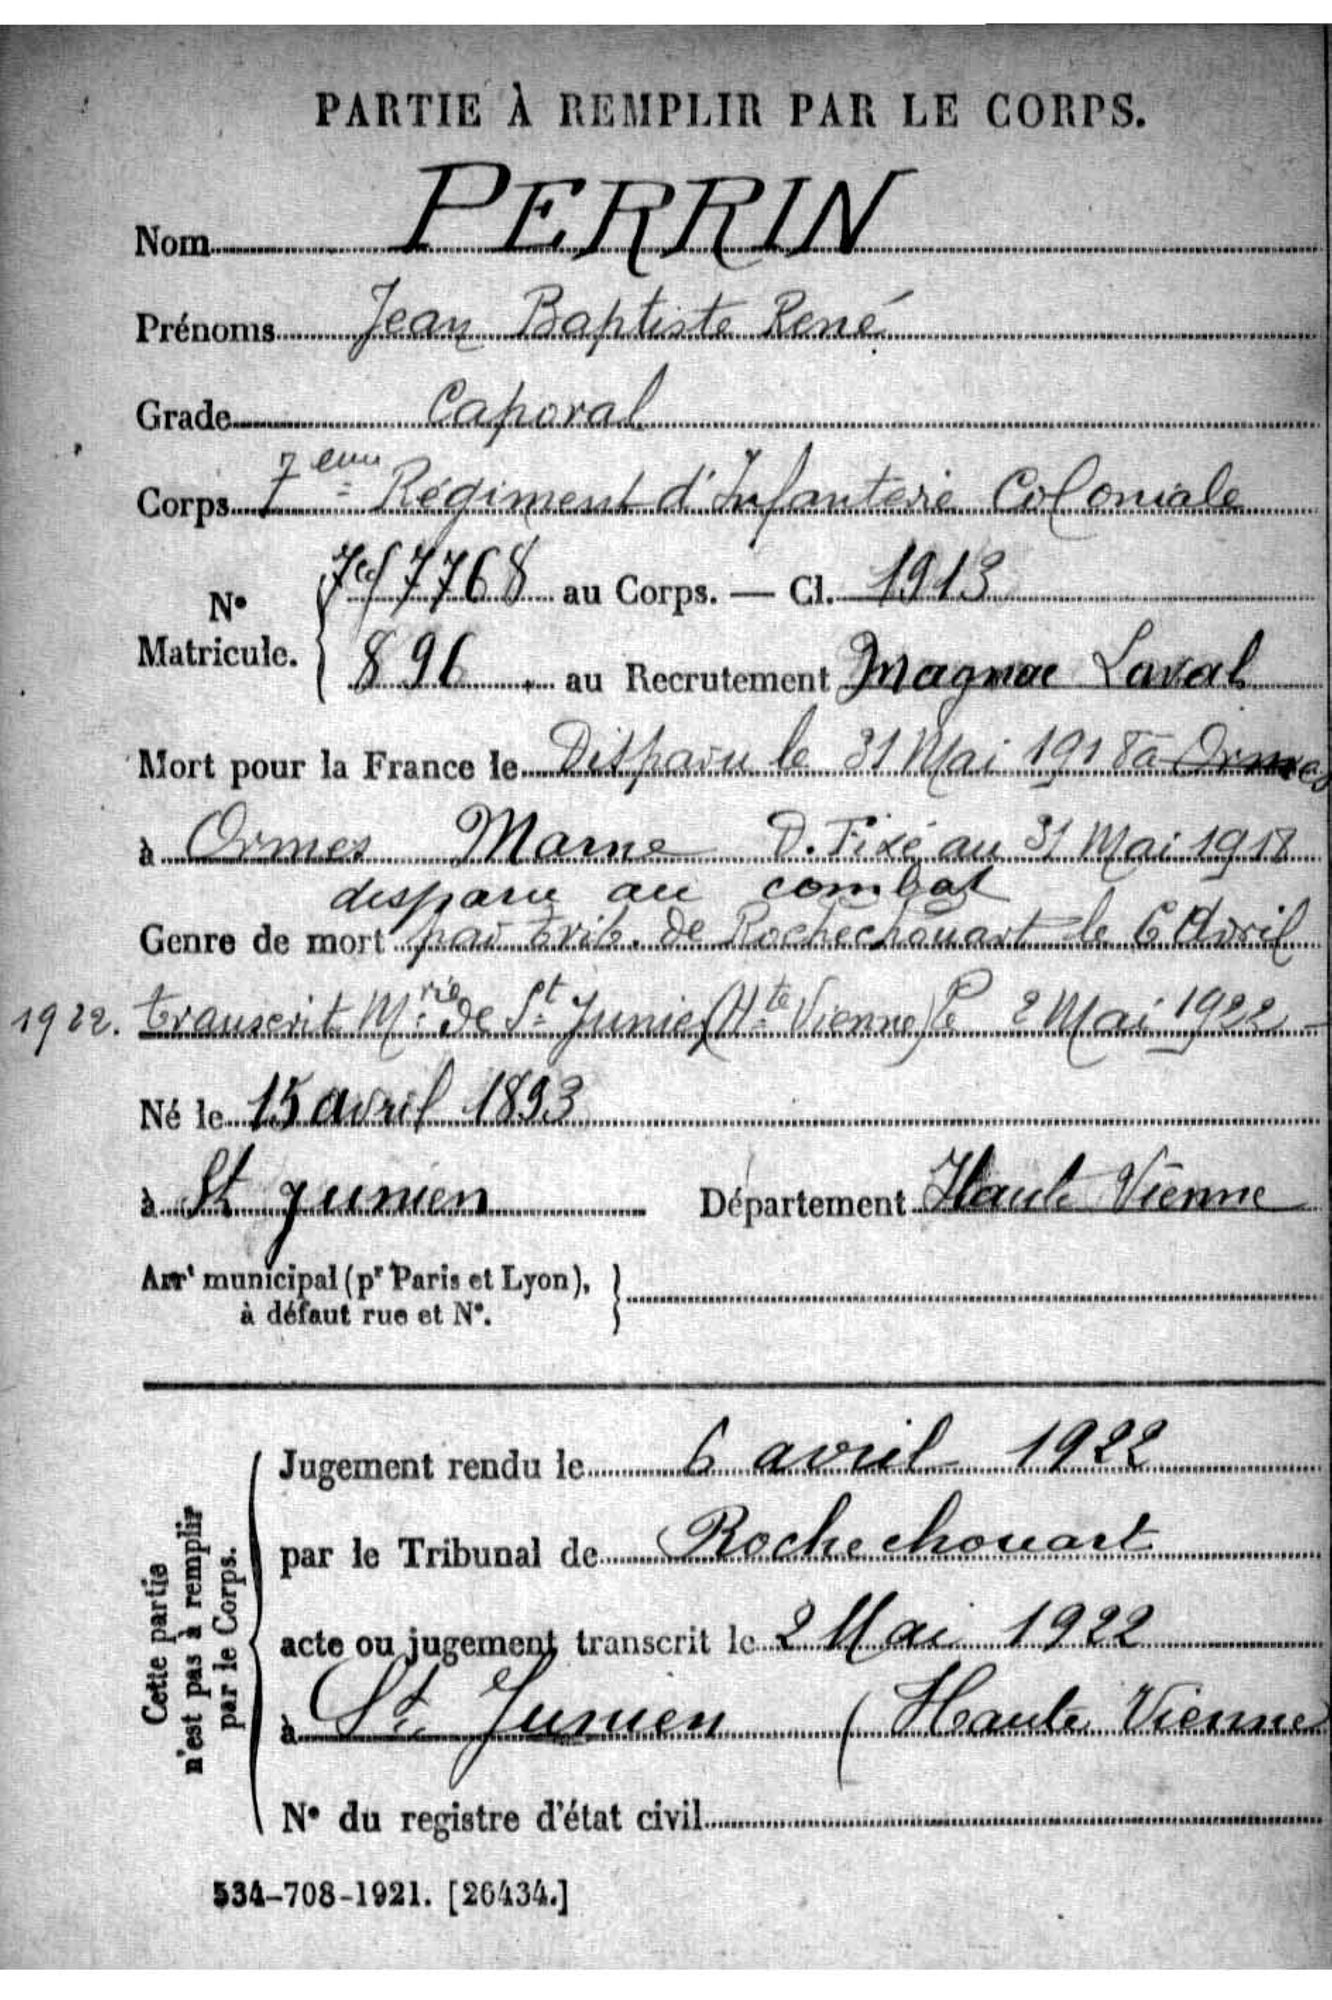 PARTIE À REMPLIR PAR LE CORPS.
Nom PERRIN
Prénoms Jean Baptiste René
Grade Caporal
Corps 7eme Régiment d'Infanterie Coloniale
7768 au Corps. — Cl. 1913
N° Matricule.
896 au Recrutement Magnac Laval
Mort pour la France le Disparu le 31 Mai 1918 à Ormes
à Ormes Marne D. Fixé au 31 Mai 1918
disparu au combat
Genre de mort par trib. de Rochechouart le 6 Avril
1922. transcrit Mrie de St Junien (Hte Vienne) le 2 Mai 1922
Né le 15 avril 1893
à St Junien Département Haute Vienne
Arrt municipal (pr Paris et Lyon),
à défaut rue et N°.
Jugement rendu le 6 avril 1922
par le Tribunal de Rochechouart
acte ou jugement transcrit le 2 Mai 1922
à St Junien (Haute Vienne)
N° du registre d'état civil
Cette partie
n'est pas à remplir
par le Corps.
534-708-1921. [26434.]